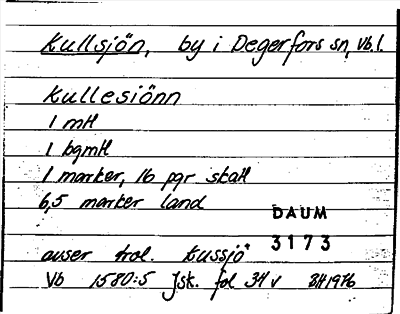 Kullsjön, by i Degerfors sn, Vb.l.
Kullesiönn
1 mtl
1 bgmtl
1 marker, 16 pgr skatt
6,5 marker land
DAUM
3173
avser trol. Kussjö
Vb 1580:5 Jsk. fol 34 v BH 1976